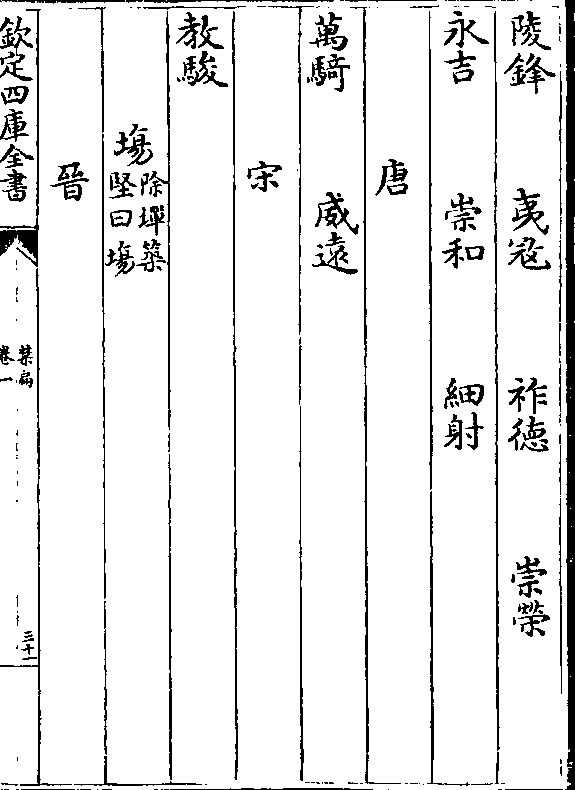 陵鋒　夷寇　祚德　崇榮
永吉　崇和　細射
唐
萬騎　威遠
宋
教駿
塲除墠築堅曰塲
晉
欽定四庫全書
禁扁
卷一
三十一